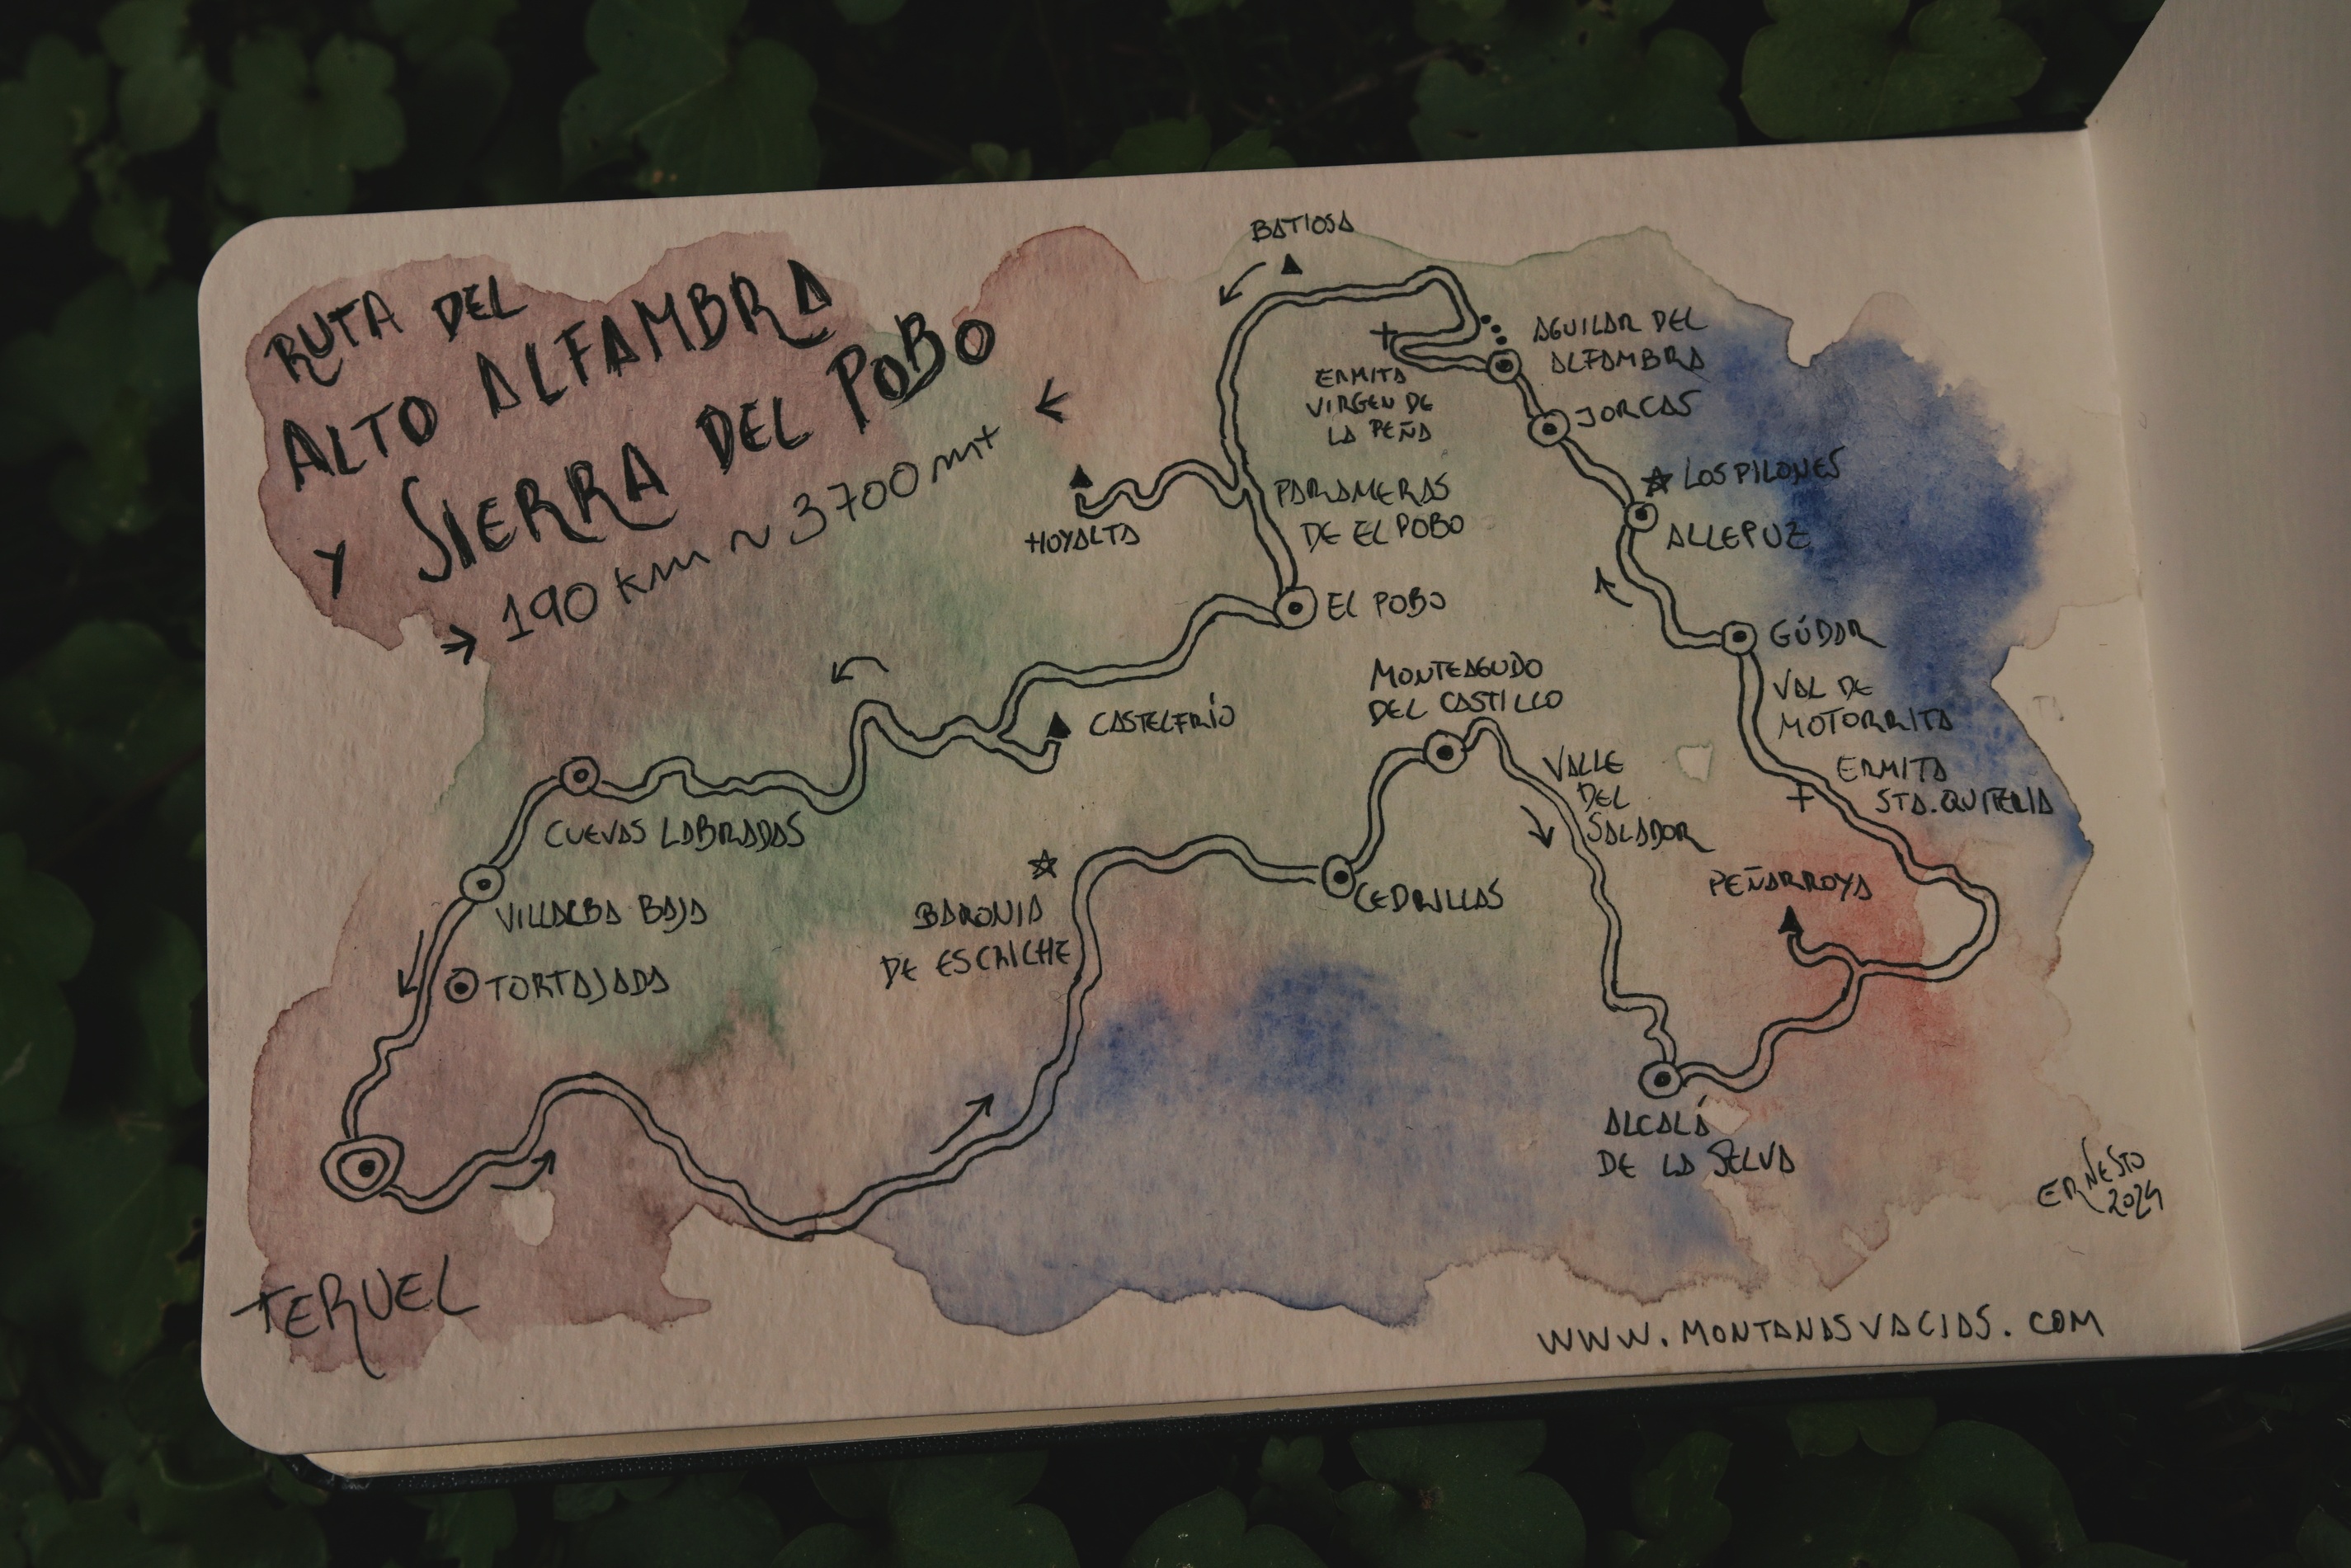 RUTA DEL
ALTO ALFAMBRA
Y SIERRA DEL POBO
→ 190 km ~ 3700 m+ ←
BATIOSA
AGUILAR DEL
ALFAMBRA
ERMITA
VIRGEN DE
LA PEÑA
JORCAS
LOS PILONES
ALLEPUZ
PARAMERAS
DE EL POBO
HOYALTA
EL POBO
GÚDAR
MONTEAGUDO
DEL CASTILLO
VAL DE
MOTORRITA
CASTELFRÍO
ERMITA
STA. QUITERIA
VALLE
DEL
SALADOR
CUEVAS LABRADAS
PEÑARROYA
CEDRILLAS
BARONIA
DE ESCRICHE
VILLALBA BAJA
TORTAJADA
ALCALÁ
DE LA SELVA
TERUEL
ERNESTO
2024
WWW.MONTANASVACIAS.COM